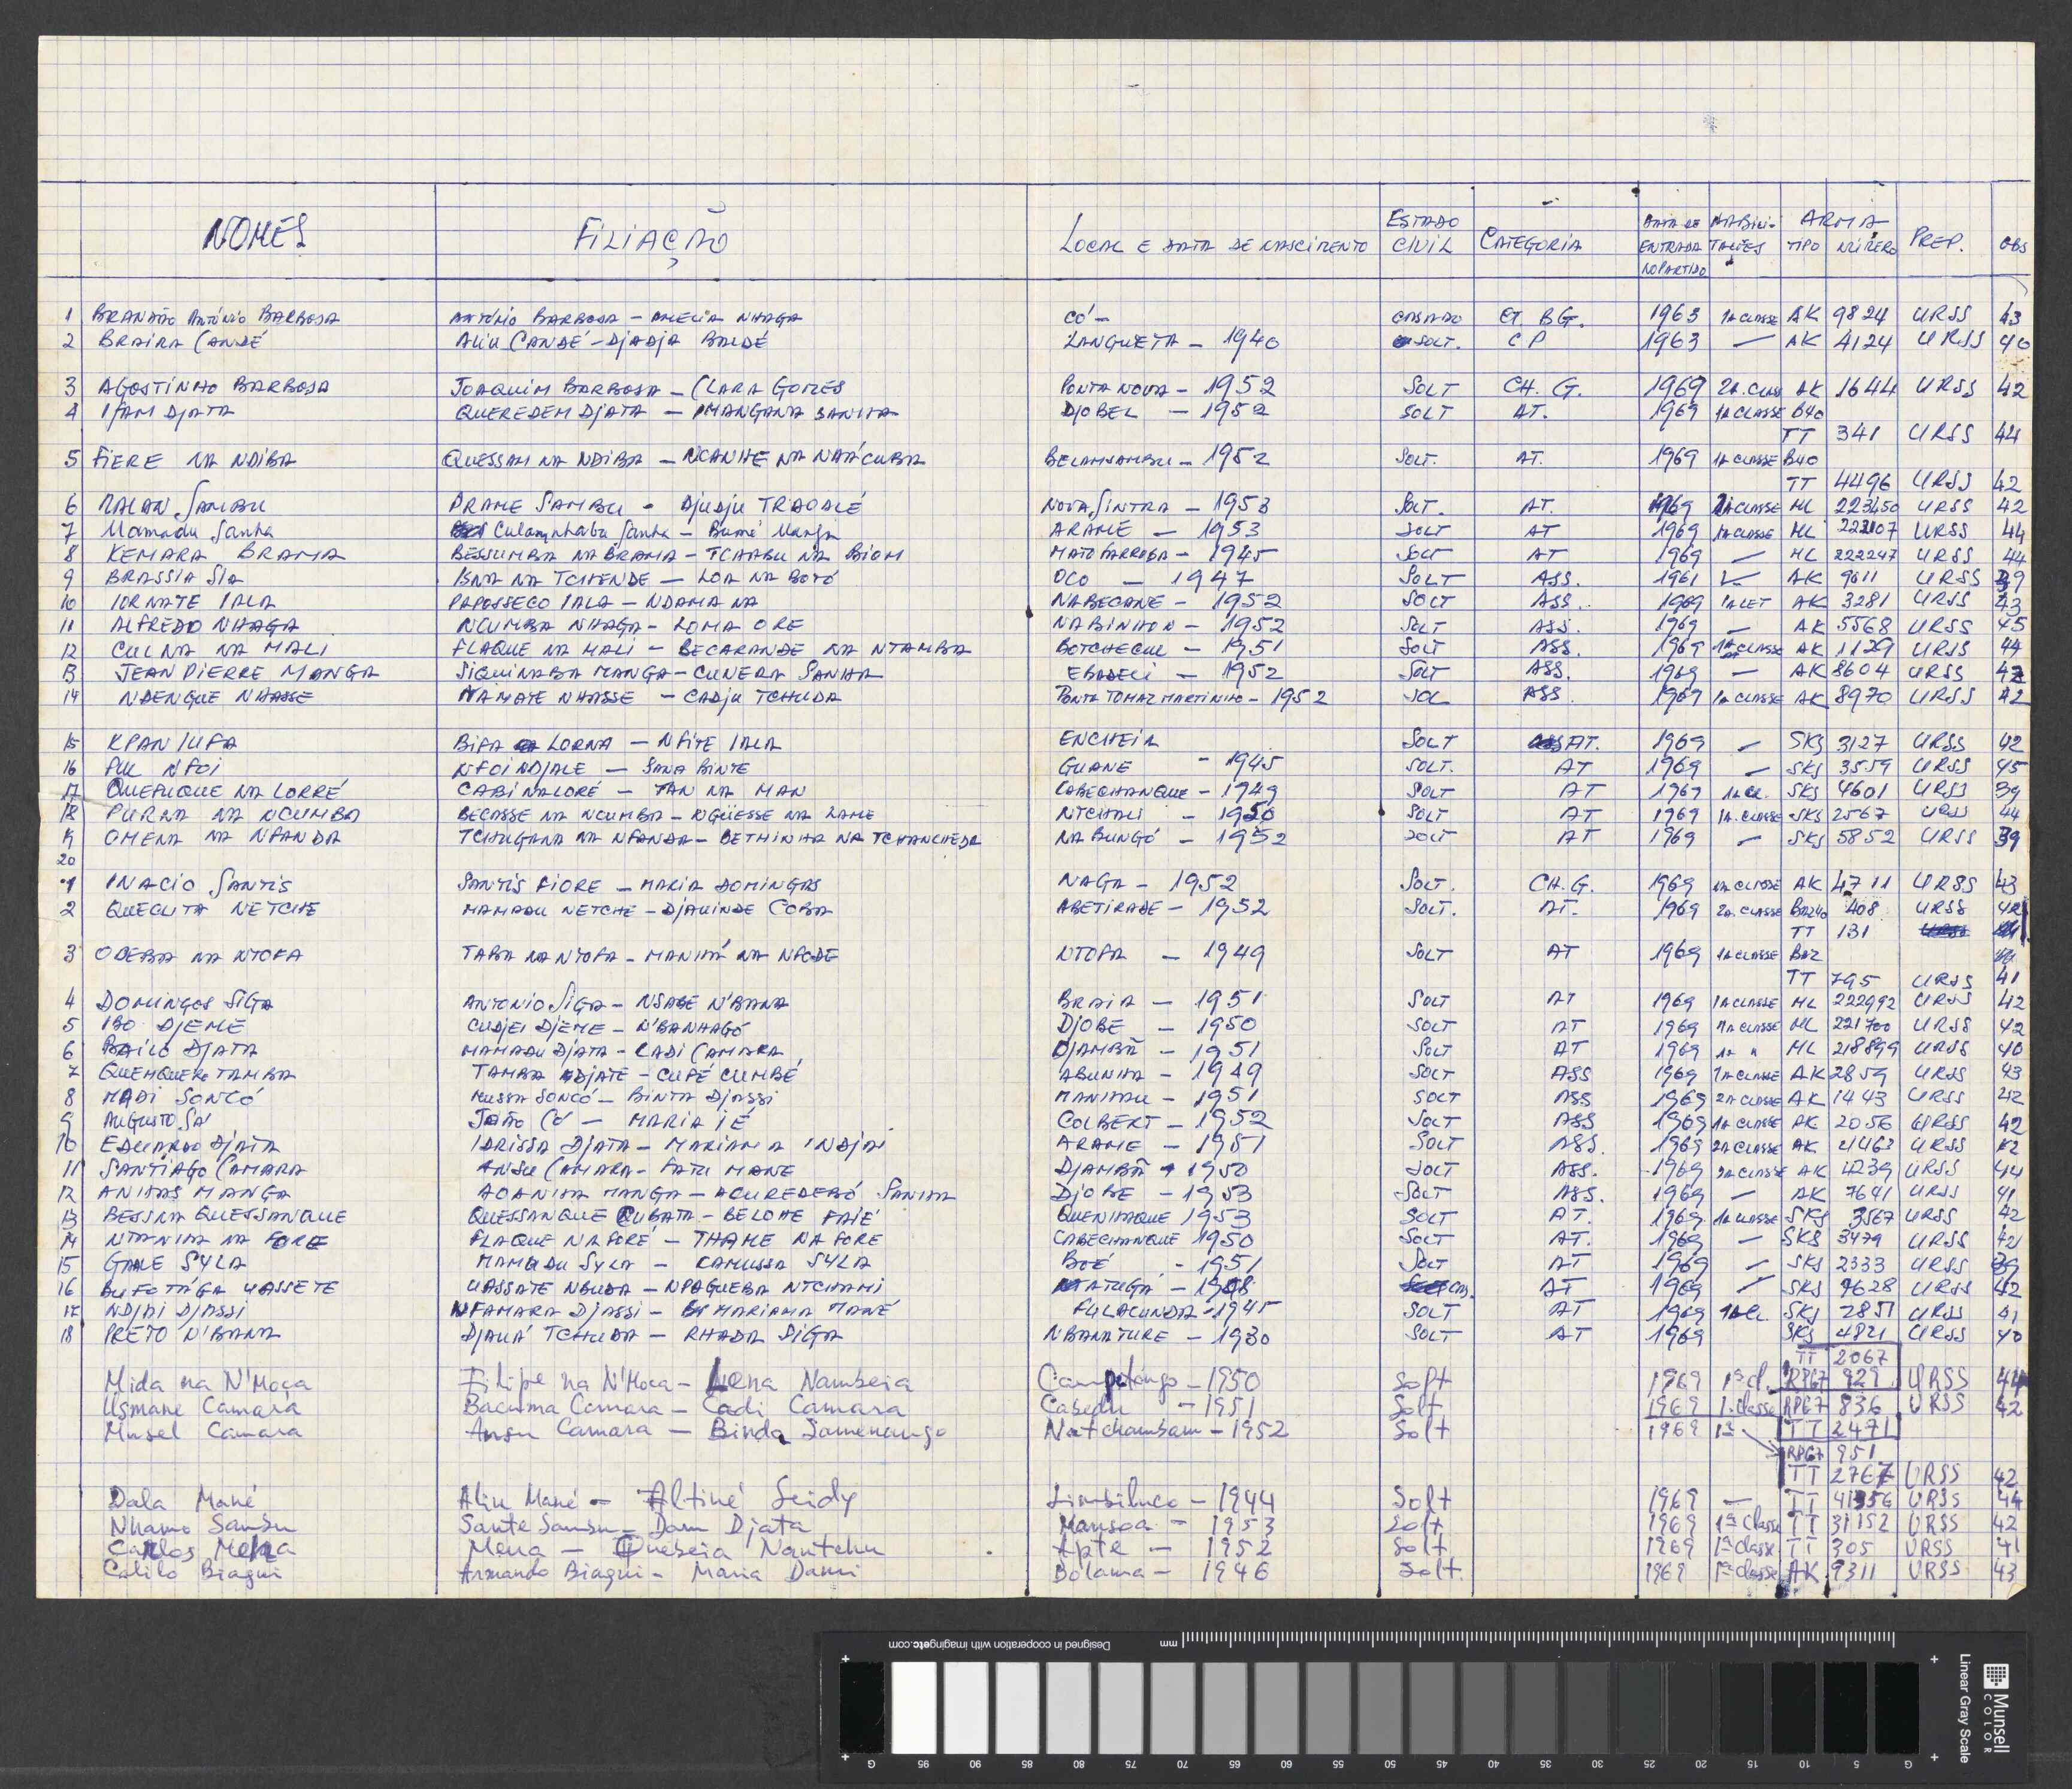 NOMES FILIAÇÃO LOCAL E DATA DE NASCIMENTO ESTADO CIVIL CATEGORIA DATA DE ENTRADA NO PARTIDO HABILITAÇÕES ARMA TIPO NÚMERO PREP. OBS
1 BRANDÃO António BARBOSA ANTÓNIO BARBOSA – AMELIA NHAGA CÓ – CASADO CT. BG. 1963 1A CLASSE AK 9824 URSS 43
2 BRAIRA CANDÉ ALIU CANDÉ – DJADJA BALDÉ LANGUETA – 1940 SOLT. CP 1963 — AK 4124 URSS 40
3 AGOSTINHO BARBOSA JOAQUIM BARBOSA – CLARA GOMES PONTA NOVA – 1952 SOLT CH. G. 1969 2A. CLASS AK 1644 URSS 42
4 IFAM DJATA QUEREDEM DJATA – MANGANA SANHA DJOBEL – 1952 SOLT AT. 1969 1A CLASSE B40
TT 341 URSS 44
5 FIERE NA NDIBA QUESSAM NA NDIBA – NCANHE NA NAÁCUBA 1952 SOLT. AT. 1969 1A CLASSE B40
TT 4496 URSS 42
6 MALAN SAMBU PRAME SAMBU – DJUDJU TRAORLÉ NOVA SINTRA – 1953 SOLT. AT. 1969 CLASSE ML 223450 URSS 42
7 Mamadu Sanha Culamnhabu Sanha – Bumé Manga ARAME – 1953 SOLT AT 1969 1A CLASSE ML URSS 44
8 KEMARA BRAMA BESSUMBA NA BRAMA – TCAMBU NA BIOM MATO FARROBA – 1945 SOLT AT 1969 — ML 222247 URSS 44
9 BRASSIA SIA BNA NA TCHENDE – LOA NA BOTÓ OCO – 1947 SOLT ASS. 1961 — AK 9011 URSS 39
10 IORNATE IALA PAPOSSECO IALA – NDAMA NA NABECANE – 1952 SOLT ASS. 1969 AK 3281 URSS 43
11 ALFREDO NHAGA NCUMBA NHAGA – LOMA ORE NABINHON – 1952 SOLT ASS. 1969 — AK 5568 URSS 45
12 CULNA NA MALI FLAQUE NA MALI – BECARANDE NA NTAMBA BOTCHECUL – 1951 SOLT ASS. 1969 1A CLASSE AK 1129 URSS 44
13 JEAN PIERRE MANGA SIQUINABA MANGA – CUNERA SANHA EBADELI – 1952 SOLT ASS. 1969 — AK 8604 URSS 42
14 NDENGUE NHASSE NAMATE NHASSE – CADJU TCHUDA PONTA TOMAZ MARTINHO – 1952 SOL ASS. 1969 1A CLASSE AK 8970 URSS 42
15 KPAN IUFA BIFA LORNA – NFITE IALA ENCHEIA SOLT AT. 1969 — SKS 3127 URSS 42
16 PUL NFOI NFOI NDJALE – SANA BINTE GUANE – 1945 SOLT. AT 1969 — SKS 3559 URSS 45
17 QUEFUQUE NA LORRÉ CABI NALORÉ – TAN NA MAN CABECHANQUE – 1949 SOLT AT 1969 1A CL. SKS 4601 URSS 39
18 PURNA NA NCUMBA BECASSE NA NCUMBA – NGUESSE NA LAME NTCHALI – 1950 SOLT AT 1969 1A. CLASSE SKS 2567 URSS 44
19 OMENA NA NFANDA TCHUGANA NA NFANDA – BETHINHA NA TCHANCHEDA NABUNGÓ – 1952 SOLT AT 1969 — SKS 5852 URSS 39
20
1 INACIO SANTIS SANTIS FIORE – MARIA DOMINGAS NAGA – 1952 SOLT. CH. G. 1969 CLASSE AK 4711 URSS 43
2 QUECUTA NETCHE MAMADU NETCHE – DJAUINDE COBA ABETIRADE – 1952 SOLT. AT. 1969 2A. CLASSE 408 URSS 42
TT 131
3 ODEBA NA NTOFA TABA NA NTOFA – MANHÁ NA NFODE NTOFA – 1949 SOLT AT 1969 1A CLASSE
TT 795 URSS 41
4 DOMINGOS SIGA ANTONIO SIGA – NSABE N'BANA BRAIA – 1951 SOLT AT 1969 1A CLASSE ML 222992 URSS 42
5 IBO DJEME CUDJEI DJEME – N'BANHAGÓ DJOBE – 1950 SOLT AT 1969 1A CLASSE ML 221700 URSS 42
6 BAILO DJATA MAMADU DJATA – CADI CAMARA DJAMBÃ – 1951 SOLT AT 1969 1A " ML 218899 URSS 40
7 QUEMQUERE TAMBA TAMBA DJATE – CUFÉ CUMBÉ ABUNHA – 1949 SOLT ASS 1969 1A CLASSE AK 2859 URSS 43
8 MADI SONCÓ MUSSA SONCÓ – BINTA DJASSI MANHAU – 1951 SOLT ASS 1969 2A CLASSE AK 1443 URSS 42
9 AUGUSTO SÁ JOÃO CÓ – MARIA IÉ COLBERT – 1952 SOLT ASS 1969 1A CLASSE AK 2056 URSS 42
10 EDUARDO DJATA IDRISSA DJATA – MARIAMA INDJAI ARAME – 1951 SOLT ASS. 1969 2A CLASSE AK 4463 URSS 42
11 SANTIAGO CAMARA ANSU CAMARA – FATU MANE DJAMBÃ – 1950 SOLT ASS. 1969 CLASSE AK 4239 URSS 44
12 ANHAS MANGA AOANHA MANGA – ACUREDEBÓ SANHA DJOBE – 1953 SOLT ASS. 1969 — AK 7641 URSS 41
13 BESSNA QUESSANQUE QUESSANQUE CUBATA – BELOHE FAIÉ QUENHAQUE 1953 SOLT AT. 1969 1A CLASSE SKS 3567 URSS 42
14 NTANHA NA FORE FLAQUE NA FORÉ – THAME NA FORE CABECHANQUE 1950 SOLT AT. 1969 — SKS 3479 URSS 42
15 GTALE SYLA MAMADU SYLA – CAMUSSA SYLA BOÉ – 1951 SOLT AT 1969 — SKS 2333 URSS 39
16 BUFOTAGA UASSETE UASSATE NBUDA – NPAGUEBA NTCHAMI MATUGÁ – 1948 CAS. AT 1969 — SKS 7628 URSS 42
17 NDJIDI DJASSI NFAMARA DJASSI – MARIAMA MANÉ FULACUNDA – 1945 SOLT AT 1969 1A CL. SKS 2851 URSS 41
18 PRETO N'BANA DJAUÁ TCHUDA – RHADA SIGA NBANATURE – 1930 SOLT AT 1969 SKS 4821 URSS 40
TT 2067
Mida na N'Moca Filipe na N'Moca – Lena Nambeia Campotango – 1950 Solt 1969 1ª cl. RPG7 929 URSS 44
Usmane Camara Bacuma Camara – Cadi Camara Cabedu – 1951 Solt 1969 1ª classe RPG7 836 URSS 42
Musel Camara Ansu Camara – Binda Samenango Natchambam – 1952 Solt 1969 1ª TT 2471
RPG7 951
TT 2767 URSS 42
Dala Mané Aliu Mané – Altiné Seidy Simbiluco – 1944 Solt 1969 — TT 41356 URSS 44
Nhamo Sambu Sante Sambu – Dam Djata Mansoa – 1953 Solt 1969 1ª classe TT 31152 URSS 42
Carlos Mena Mena – Quebeia Nantchu Apte – 1952 Solt 1969 1ª classe TT 305 URSS 41
Calilo Biagui Armando Biagui – Maria Dami Bolama – 1946 Solt. 1969 1ª classe AK 9311 URSS 43
mm Designed in cooperation with imagingetc.com
G 95 90 85 80 75 70 65 60 55 50 45 40 35 30 25 20 15 10 5 G
Munsell COLOR
Linear Gray Scale